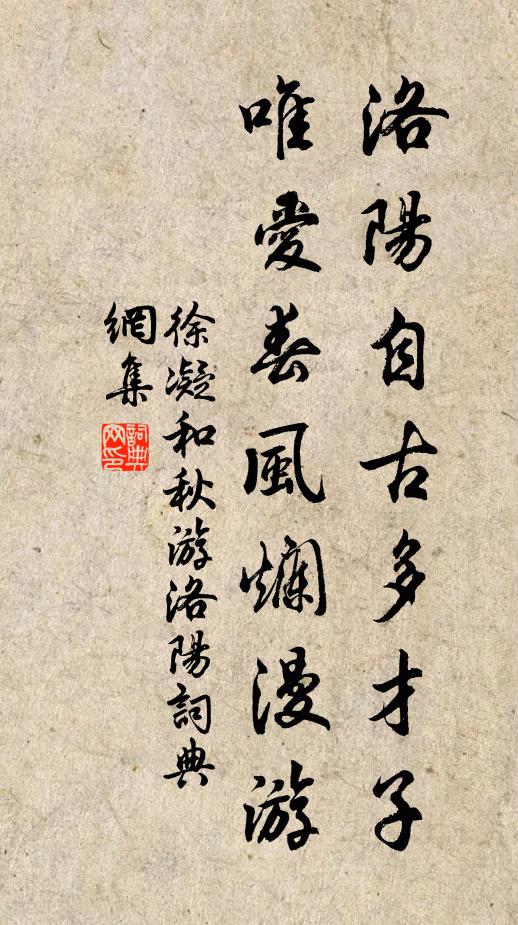 洛陽自古多才子
唯愛春風爛漫游
徐凝和秋游洛陽詞典
網集
詞典
网印